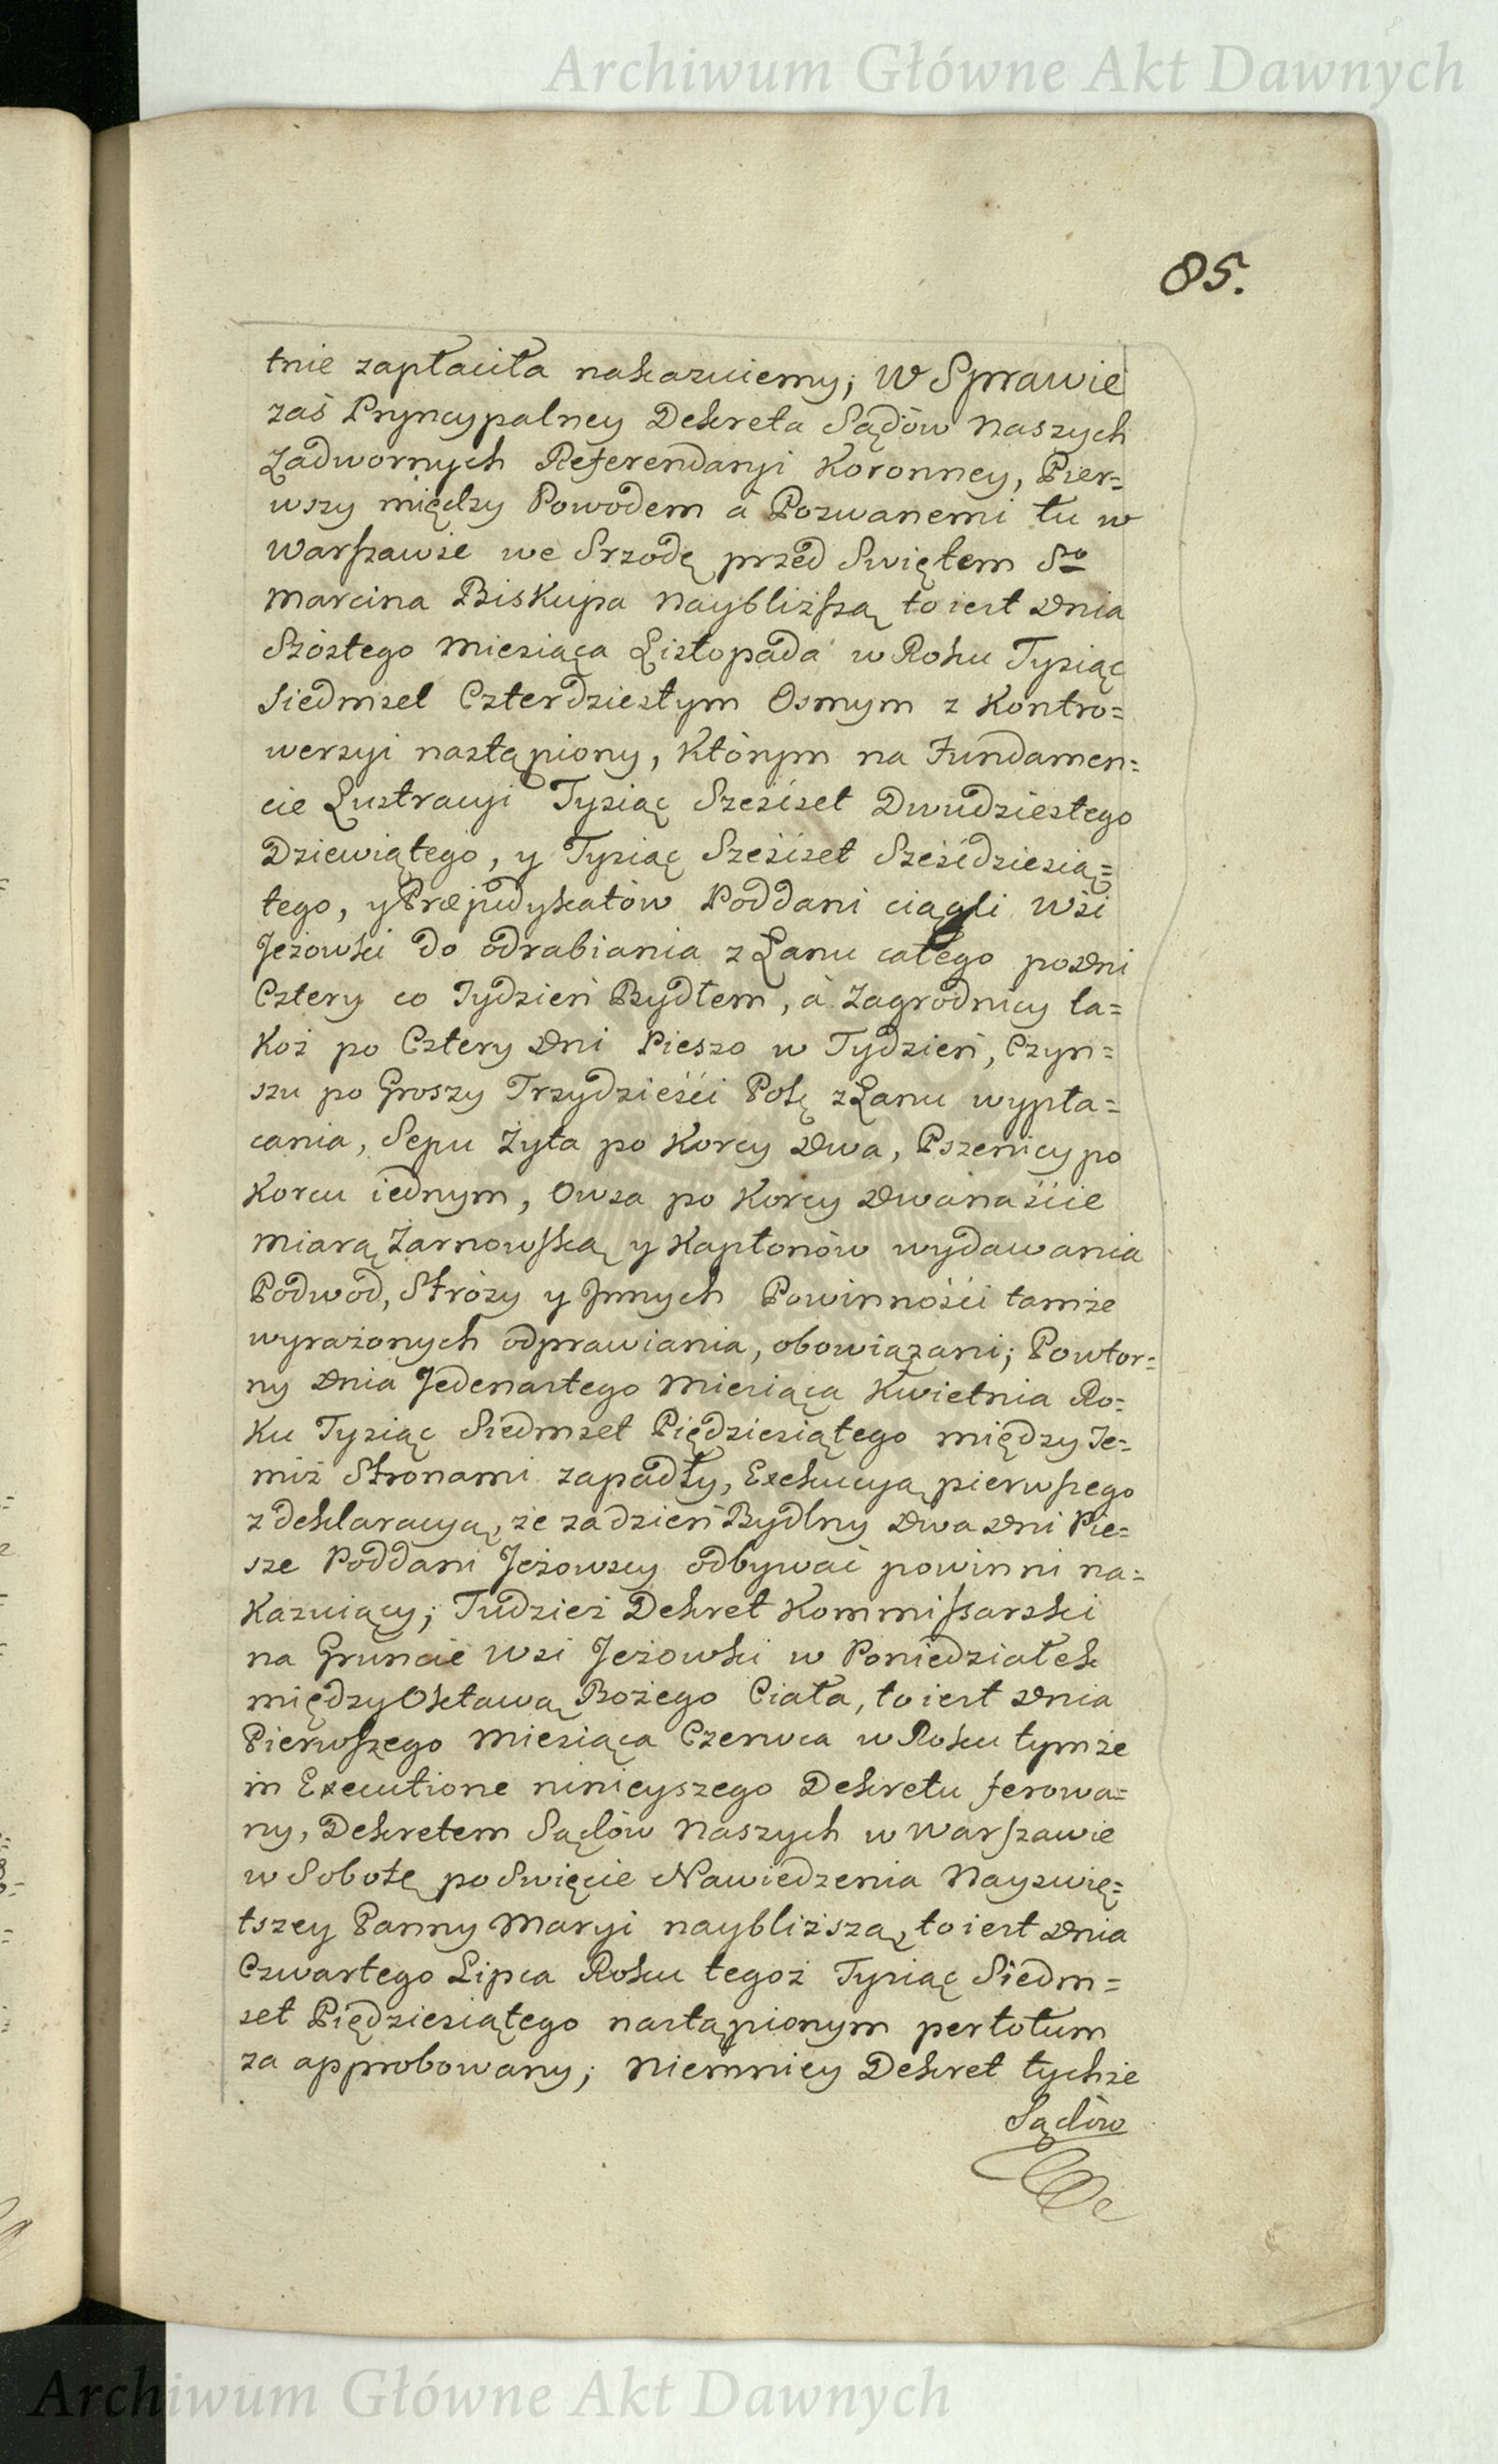 Archiwum Główne Akt Dawnych
85.
tnie zapłaciła nakazuiemy; W Sprawie
zaś Pryncypalney Dekreta Sądów Naszych
Zadwornych Referendaryi Koronney, Pier=
wszy między Powodem á Pozwanemi tu w
Warszawie we Srzodę przed Swiętem So
Marcina Biskupa Naybliższą to iest Dnia
Szóstego Miesiąca Listopada w Roku Tysiąc
Siedmset Czterdziestym Osmym z Kontro=
wersyi nastąpiony, Którym na Fundamen=
cie Lustracyi Tysiąc Sześćset Dwudziestego
Dziewiątego, y Tysiąc Sześćset Sześćdziesią=
tego, y Præjudykatów Poddani ciągli Wsi
Jeżowki do odrabiania z Łanu całego po Dni
Cztery co Tydzień Bydłem, á Zagrodnicy ta=
Koż po Cztery Dni Pieszo w Tydzień, Czyn=
szu po Groszy Trzydzieści Połę z Łanu wypła=
cania, Sepu Żyta po Korcy Dwa, Pszenicy po
Korcu iednym, Owsa po Korcy Dwanaście
Miarą Żarnowską y Kapłonów wydawania
Podwod, Stróży y Jnnych Powinności tamże
wyrażonych odprawiania, obowiązani; Powtor=
ny Dnia Jedenastego Miesiąca Kwietnia Ro=
Ku Tysiąc Siedmset Pięćdziesiątego między Te=
miż Stronami zapadły, Exekucyą pierwszego
z deklaracyą, że za dzień Bydlny Dwa Dni Pie=
sze Poddani Jeżowscy odbywać powinni na=
Kazuiący; Tudzież Dekret Kommissarski
na Gruncie Wsi Jeżowki w Poniedziałek
między Oktawą Bożego Ciała, to iest Dnia
Pierwszego Miesiąca Czerwca w Roku tymże
in Executione ninieyszego Dekretu ferowa=
ny, Dekretem Sądów Naszych w Warszawie
w Sobotę po Swięcie Nawiedzenia Nayswię=
tszey Panny Maryi naybliższą, to iest Dnia
Czwartego Lipca Roku tegoż Tysiąc Siedm=
set Pięćdziesiątego nastąpionym per totum
za approbowany; Niemniey Dekret tychże
Sądów
Archiwum Główne Akt Dawnych